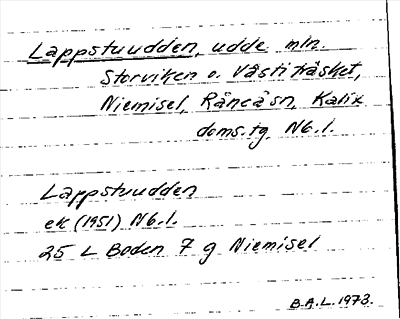 Lappstuudden, udde mln.
Storviken o. Västiträsket,
Niemisel, Råneå sn, Kalix
doms.tg Nb.l.
Lappstuudden
ek (1951) Nb.l.
25 L Boden 7 g Niemisel
B.A.L. 1973.